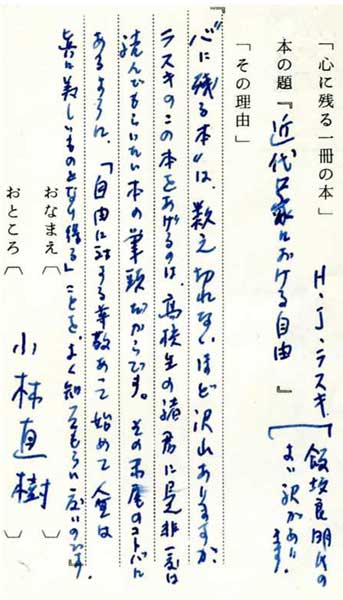 「心に残る一冊の本」
本の題『近代国家における自由』
H・J・ラスキ
飯坂良明氏の
よい訳があり
ます。
「その理由」
“心に残る本”は、数え切れないほど沢山ありますが、
ラスキのこの本をあげるのは、高校生の諸君に是非一度は
読んでもらいたい本の筆頭だからです。その末尾のコトバに
あるように、「自由に対する尊敬あって始めて人生は
真に美しいものとなり得る」ことを、よく知ってもらい度いのです。
おなまえ〔小林直樹〕
おところ〔 〕